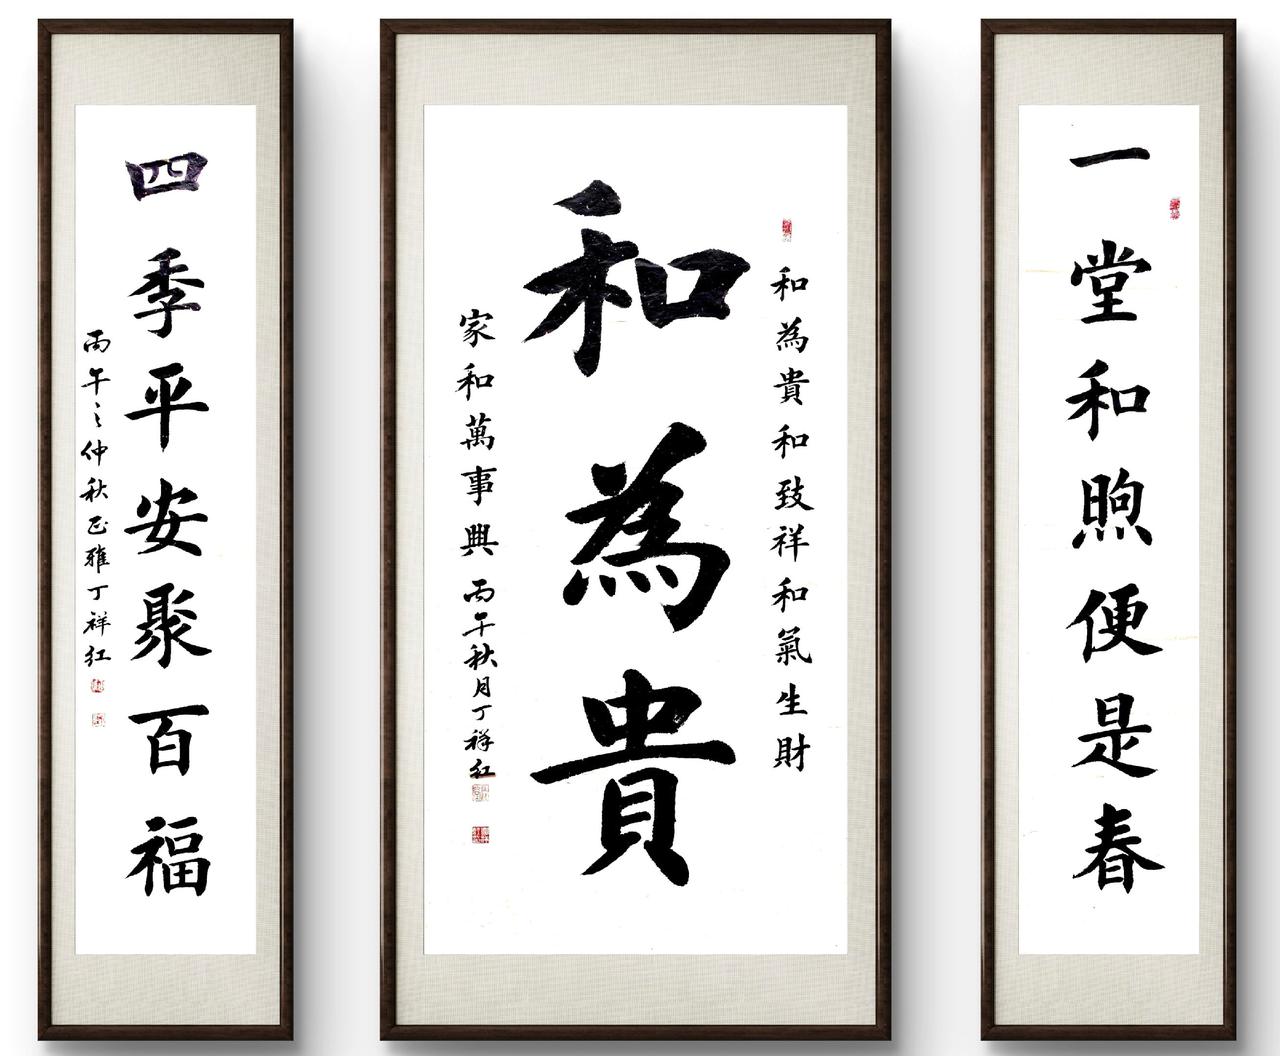 一堂和煦便是春
和為貴和致祥和氣生財
和為貴
家和萬事興
丙午秋月丁祥红
四季平安聚百福
丙午之仲秋 雅丁祥红